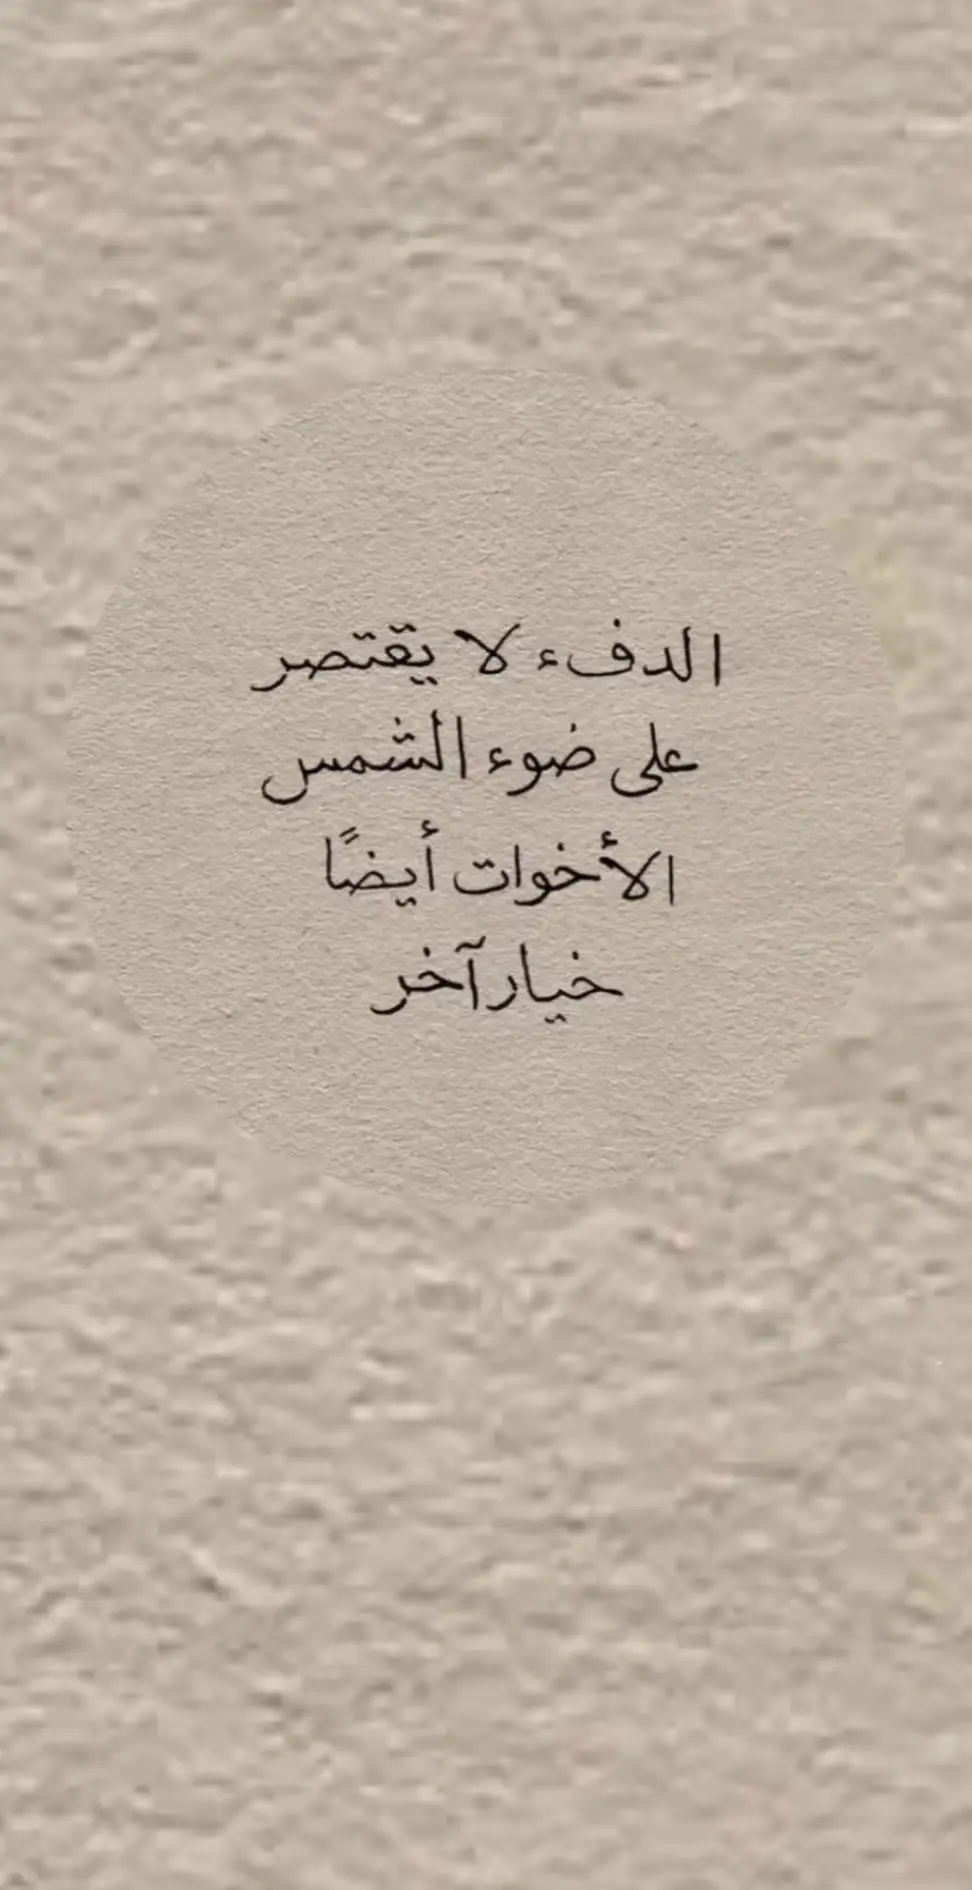 الدفء لا يقتصر
على ضوء الشمس
الأخوات أيضًا
خيار آخر